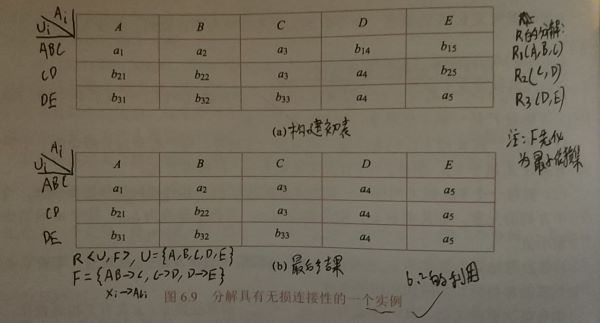 Ai
Ui
A B C D E
ABC a1 a2 a3 b14 b15
CD b21 b22 a3 a4 b25
DE b31 b32 b33 a4 a5
(a) 构建初表
Ai
Ui
A B C D E
ABC a1 a2 a3 a4 a5
CD b21 b22 a3 a4 a5
DE b31 b32 b33 a4 a5
(b) 最后结果
R<U,F>, U={A,B,C,D,E}
F={AB→C, C→D, D→E}
图 6.9 分解具有无损连接性的一个实例
R的分解:
R1(A,B,C)
R2(C,D)
R3(D,E)
注:F先化
为最小依赖集
的利用